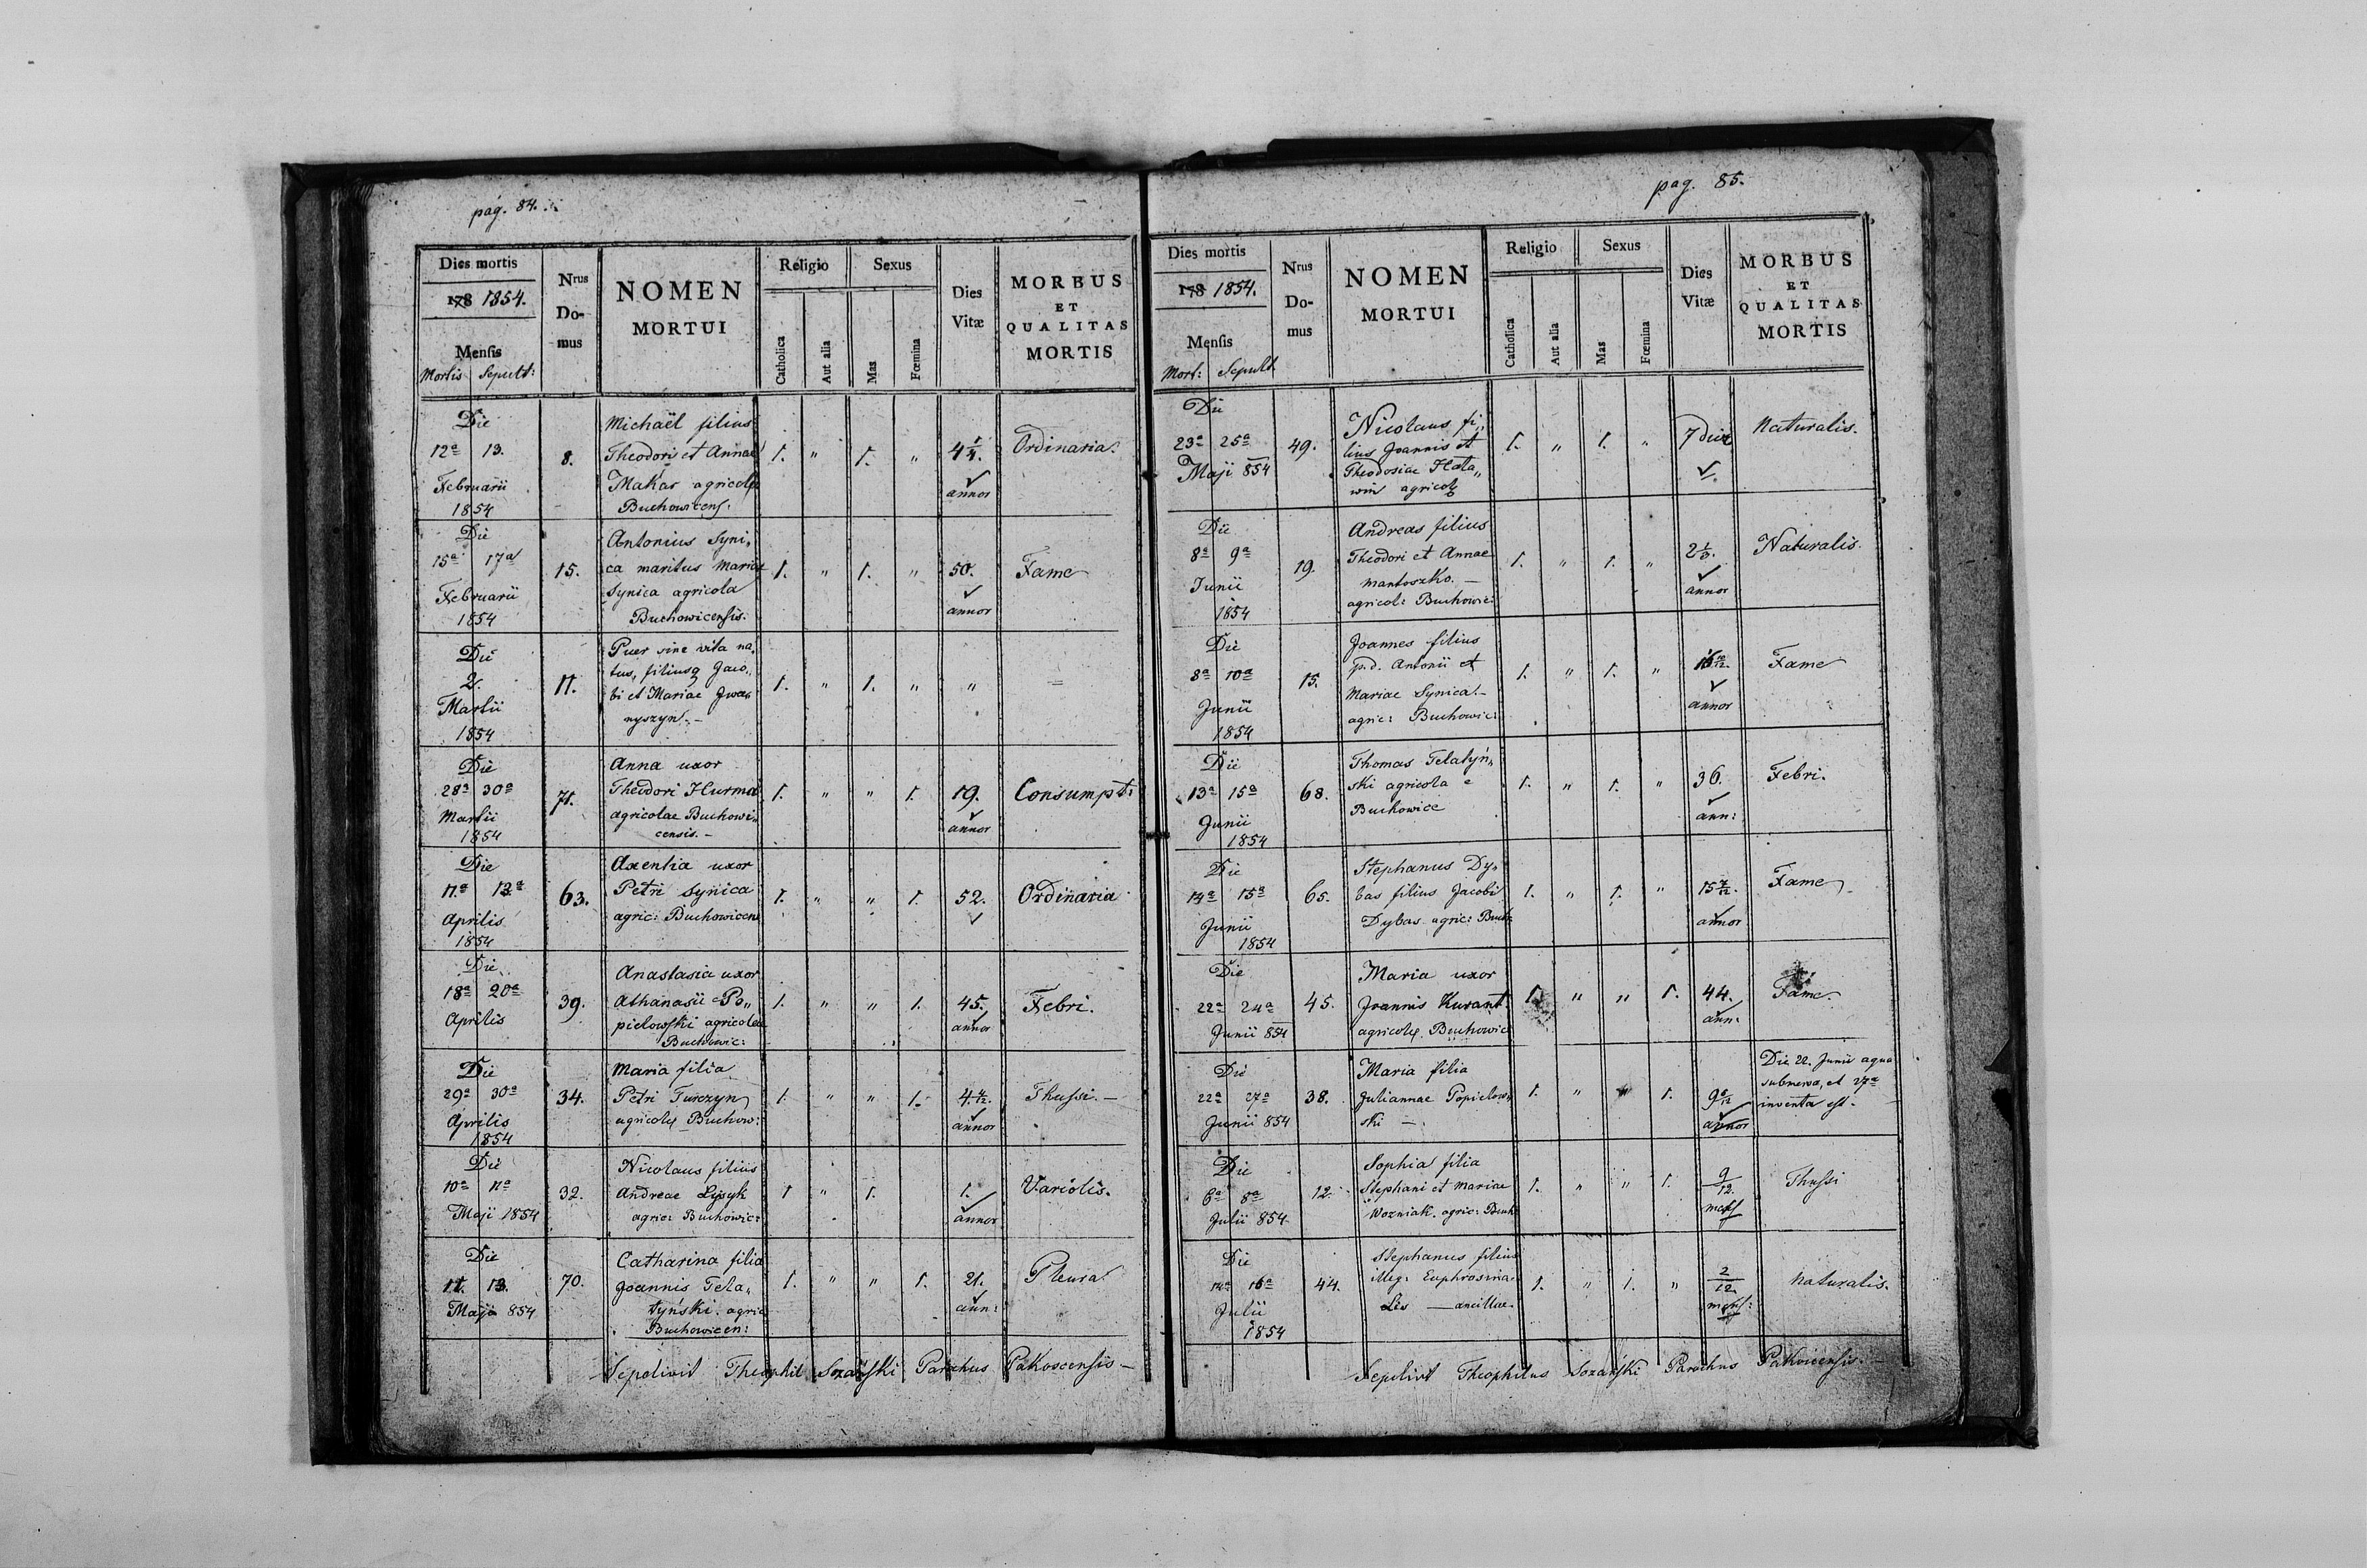 pag. 84.
Dies mortis
178 1854.
Mensis
Mortis Sepult:
Nrus
Do-
mus
NOMEN
MORTUI
Religio
Catholica
Aut alia
Sexus
Mas
Fœmina
Dies
Vitæ
MORBUS
ET
QUALITAS
MORTIS
Die
12a 13.
Februarii
1854
8.
Michaël filius
Theodori et Annae
Makar agricolae
Buchowicens.
1. " 1. "
4 1/4.
annor
Ordinaria.
Die
15a 17a
Februarii
1854
15.
Antonius Syni„
ca maritus Mariae
Synica agricola
Buchowicensis.
1. " 1. "
50.
annor
Fame
Die
2.
Martii
1854
11.
Puer sine vita na„
tus, filiusq Jaco„
bi et Mariae Jwa„
nyszyn. –
1. " 1. " "
Die
28a 30a
Martii
1854
71.
Anna uxor
Theodori Hurmal
agricolae Buchowi„
censis. –
1. " " 1.
19.
annor
Consumpt:
Die
11.a 13.a
Aprilis
1854
63.
Axentia uxor
Petri Synica
agric: Buchowicen
1. " " 1.
52.
Ordinaria
Die
18a 20a
Aprilis
39.
Anastasia uxor
Athanasii Po„
pielowski agricolae
Buchowic:
1. " " 1.
45.
annor
Febri.
Die
29a 30a
Aprilis
1854
34.
Maria filia
Petri Turczyn
agricolae Buchow:
1. " " 1.
annor
Thussi. –
Die
10a 11a
Maji 1854
32.
Nicolaus filius
Andreae Lysyk
agric: Buchowic:
1 " 1.
1.
annor
Variolis.
Die
11. 13.
Maja 854
70.
Catharina filia
Joannis Tela„
tyński. agric
Buchowicen:
1. " " 1.
21.
ann:
Pleura.
Sepelivit Theophil Sozański Parochus Pakoscensis –
pag. 85.
Dies mortis
178 1854.
Mensis
Mort: Sepult
Nrus
Do-
mus
NOMEN
MORTUI
Religio
Catholica
Aut alia
Sexus
Mas
Fœmina
Dies
Vitæ
MORBUS
ET
QUALITAS
MORTIS
Die
23a 25a
Maji 854
49.
Nicolaus fi„
lius Joannis et
Theodosiae Hata„
win agricolae
1. " 1. "
7 die
Naturalis.
Die
8a 9a
Junii
1854
19.
Andreas filius
Theodori et Annae
Mantoszko. –
agricol: Buchowic:
1. " 1. "
annor
Naturalis.
Die
8a 10a
Junii
1854
15.
Joannes filius
p.d. Antonii et
Mariae Synica. –
agric: Buchowic:
1. " 1. "
annor
Fame
Die
13a 15a
Junii
1854
68.
Thomas Telatyń„
ski agricola e
Buchowice
1. " 1. "
36.
ann:
Febri.
Die
14a 15a
Junii
1854
65.
Stephanus Dy„
bas filius Jacobi
Dybas agric: Buch:
1. " 1. "
annor
Fame
Die
22a 24a
Junii 854
45.
Maria uxor
Joannis Kurant
agricolae Buchowic
1. " " 1.
44.
ann:
Fame.
Die
22a 27a
Junii 854
38.
Maria filia
Juliannae Popielow„
ski –
1. " " 1.
annor
Die 22. Junii aqua
submersa, et 27a
inventa est. –
Die
6a 8a
Julii 854
12.
Sophia filia
Stephani et Mariae
Wozniak. agric: Buch
1. " " 1.
9/12.
mens
Thussi
Die
14a 16a
Julii
1854
44.
Stephanus filius
illeg: Euphrosinae
Lis — ancillae.
1. " 1. "
2/12.
mens:
Naturalis.
Sepelivit Theophilus Sozański Parochus Pakoscensis. –